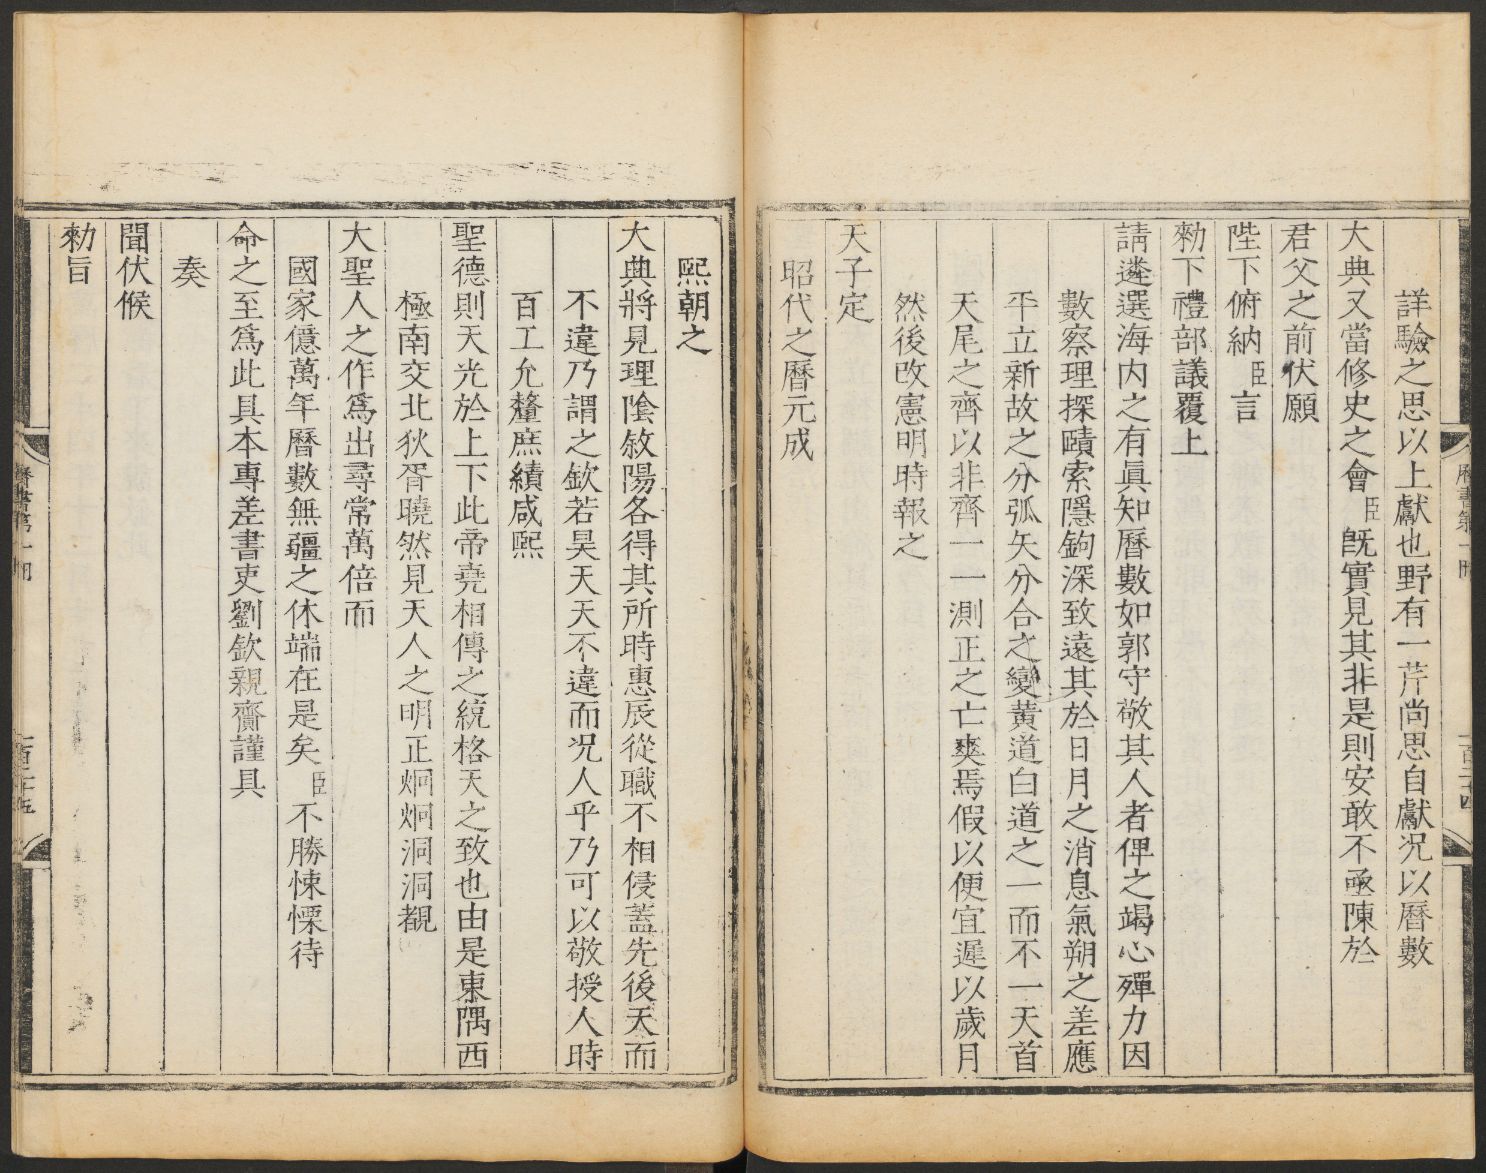 詳驗之思以上獻也野有一芹尚思自獻况以曆數
大典又當修史之會臣旣實見其非是則安敢不亟陳於
君父之前伏願
陛下俯納臣言
勑下禮部議覆上
請遴選海内之有眞知曆數如郭守敬其人者俾之竭心殫力因
數察理探賾索隱鉤深致遠其於日月之消息氣朔之差應
平立新故之分弧矢分合之變黄道白道之一而不一天首
天尾之齊以非齊一一測正之亡爽焉假以便宜遲以歲月
然後改憲明時報之
天子定
昭代之曆元成
熙朝之
大典將見理陰敘陽各得其所時惠辰從職不相侵蓋先後天而
不違乃謂之欽若昊天天不違而况人乎乃可以敬授人時
百工允釐庶績咸熙
聖德則天光於上下此帝堯相傳之統格天之致也由是東隅西
極南交北狄胥曉然見天人之明正炯炯洞洞覩
大聖人之作爲出尋常萬倍而
國家億萬年曆數無疆之休端在是矣臣不勝悚慄待
命之至爲此具本專差書吏劉欽親齎謹具
奏
聞伏候
勑旨